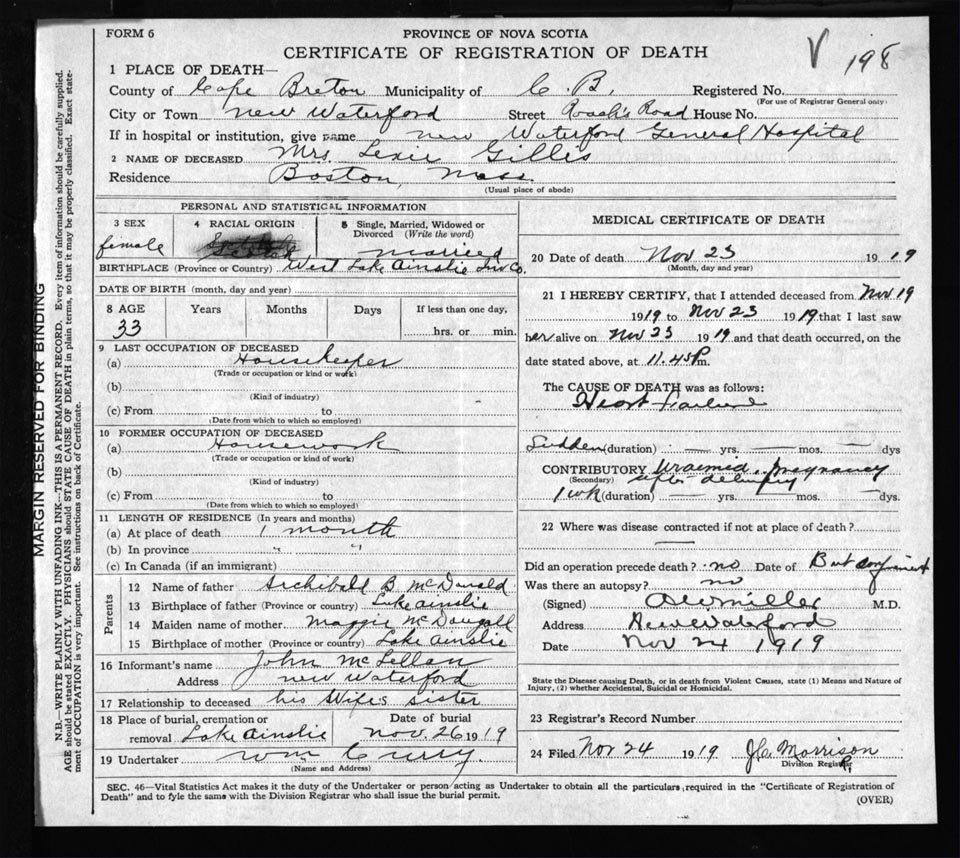 FORM 6
PROVINCE OF NOVA SCOTIA
CERTIFICATE OF REGISTRATION OF DEATH
V 198
1 PLACE OF DEATH—
County of Cape Breton Municipality of C. B. Registered No.
(For use of Registrar General only)
City or Town New Waterford Street Roach's Road House No.
If in hospital or institution, give name New Waterford General Hospital
2 NAME OF DECEASED Mrs. Lexie Gillis
Residence Boston, Mass.
(Usual place of abode)
PERSONAL AND STATISTICAL INFORMATION
3 SEX female
4 RACIAL ORIGIN Scotch
5 Single, Married, Widowed or Divorced (Write the word) married
BIRTHPLACE (Province or Country) West Lake Ainslie Inv Co.
DATE OF BIRTH (month, day and year)
8 AGE Years Months Days If less than one day,
33 hrs. or min.
9 LAST OCCUPATION OF DECEASED
(a) Housekeeper
(Trade or occupation or kind or work)
(b)
(Kind of industry)
(c) From to
(Date from which to so employed)
10 FORMER OCCUPATION OF DECEASED
(a) Housework
(Trade or occupation or kind of work)
(b)
(Kind of industry)
(c) From to
(Date from which to so employed)
11 LENGTH OF RESIDENCE (In years and months)
(a) At place of death 1 month
(b) In province " "
(c) In Canada (if an immigrant)
Parents
12 Name of father Archibald B McDonald
13 Birthplace of father (Province or country) Lake Ainslie
14 Maiden name of mother Maggie McDougall
15 Birthplace of mother (Province or country) Lake Ainslie
16 Informant's name John McLellan
Address New Waterford
17 Relationship to deceased his Wife's sister
18 Place of burial, cremation or removal Lake Ainslie
Date of burial Nov 26 1919
19 Undertaker Wm Curry.
(Name and Address)
MEDICAL CERTIFICATE OF DEATH
20 Date of death Nov 23 1919
(Month, day and year)
21 I HEREBY CERTIFY, that I attended deceased from Nov 19
1919 to Nov 23 1919 that I last saw
her alive on Nov 23 1919 and that death occurred, on the
date stated above, at 11.45 P m.
The CAUSE OF DEATH was as follows:
Heart Failure
Sudden (duration) — yrs. — mos. — dys
CONTRIBUTORY Uraemia.. Pregnancy
(Secondary) after delivery
1 wk (duration) — yrs. — mos. — dys.
22 Where was disease contracted if not at place of death?
Did an operation precede death? no Date of But confinement
Was there an autopsy? no
(Signed) Miller M.D.
Address New Waterford
Date Nov 24 1919
State the Disease causing Death, or in death from Violent Causes, state (1) Means and Nature of
Injury, (2) whether Accidental, Suicidal or Homicidal.
23 Registrar's Record Number
24 Filed Nov 24 1919 J.C. Morrison
Division Registrar
SEC. 46—Vital Statistics Act makes it the duty of the Undertaker or person acting as Undertaker to obtain all the particulars required in the "Certificate of Registration of
Death" and to fyle the same with the Division Registrar who shall issue the burial permit.
(OVER)
MARGIN RESERVED FOR BINDING
N.B.—WRITE PLAINLY WITH UNFADING INK—THIS IS A PERMANENT RECORD. Every item of information should be carefully supplied.
AGE should be stated EXACTLY. PHYSICIANS should STATE CAUSE OF DEATH in plain terms, so that it may be properly classified. Exact state-
ment of OCCUPATION is very important. See instructions on back of Certificate.